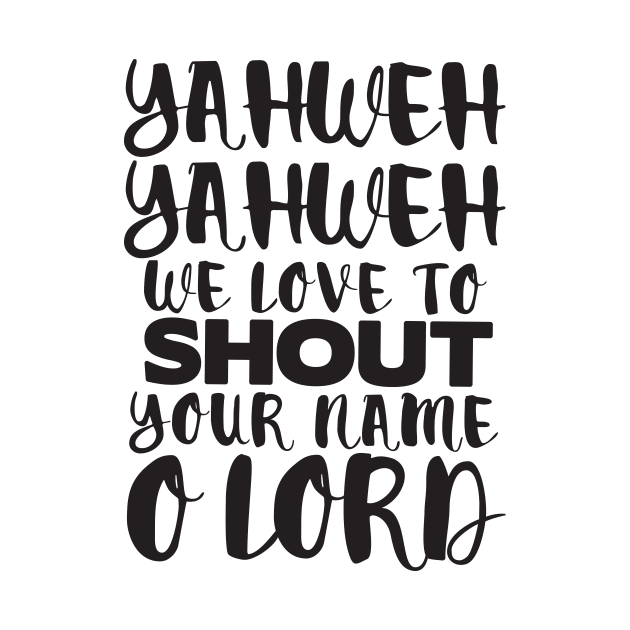 YAHWEH
YAHWEH
WE LOVE TO
SHOUT
YOUR NAME
O LORD